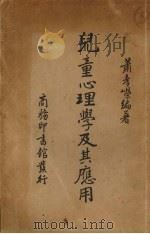 蕭孝嶸編著
兒童心理學及其應用
商務印書館發行